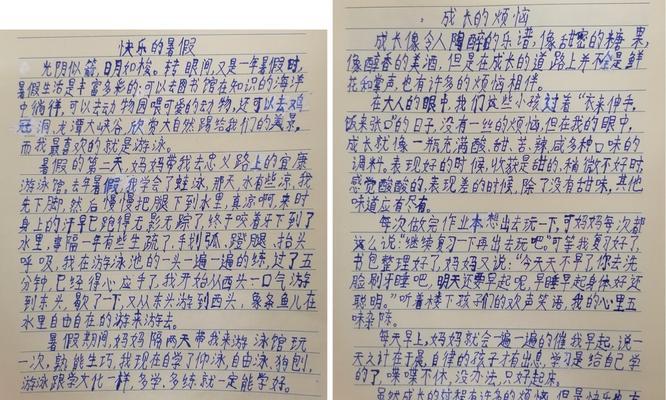 快乐的暑假
光阴似箭,日月如梭。转眼间,又是一年暑假时,
暑假生活是丰富多彩的:可以去图书馆在知识的海洋
中徜徉,可以去动物园喂可爱的动物,还可以去鸡
冠洞,龙潭大峡谷,欣赏大自然赐给我们的美景,
而我最喜欢的就是游泳。
暑假的第二天,妈妈带我去忠义路上的宜康
游泳馆,去年暑假,我学会了蛙泳,那天,水有些凉,我
先下脚,然后慢慢把腿下到水里,真凉啊,来时
身上的汗早已跑得无影无踪了终于咬着牙下到了
水里,事隔一年有些生疏了,手划弧,蹬腿,抬头
呼吸,我在游泳池的一头一遍一遍的练,过了五
分钟,已经得心应手了,我开始从西头一口气游
到东头,歇了一下,又从东头游到西头,象条鱼儿在
水里自由自在的游来游去。
暑假期间,妈妈隔两天带我来游泳馆玩
一次,熟能生巧,我现在自学了仰泳,自由泳,狗刨,
游泳跟学文化一样,多学,多练就一定能学好。
成长的烦恼
成长像令人陶醉的乐谱,像甜密的糖果,
像醇香的美酒,但是在成长的道路上并不全是鲜
花和掌声,也有许多的烦恼相伴。
在大人的眼中,我们这些小孩过着“衣来伸手,
饭来张口”的日子,没有一丝的烦恼,但在我的眼中,
成长就像一瓶充满酸、甜、苦、辣、咸多种口味的
调料。表现好的时候,收获是甜的,稍微不好时,
感觉酸酸的,表现差的时候,除了没有甜味,其他
味道应有尽有。
每次做完作业本想出去玩一下,可妈妈每次都
这么说:“继续复习一下再出去玩吧。”可等我复习好了,
书包整理好了,妈妈又说:“今天天不早了,你去洗
脸刷牙睡吧,明天还要早起呢,早睡早起身体好还
聪明。”听着楼下孩子们的欢声笑语,我的心里五
味杂陈。
每天早上,妈妈就会一遍一遍的催我早起,说一
天之计在于晨,自律的孩子才有出息,学习是给自己学
的了,喋喋不休,没办法,只好起床。
虽然成长的时候有许多的烦恼,但是快乐也有